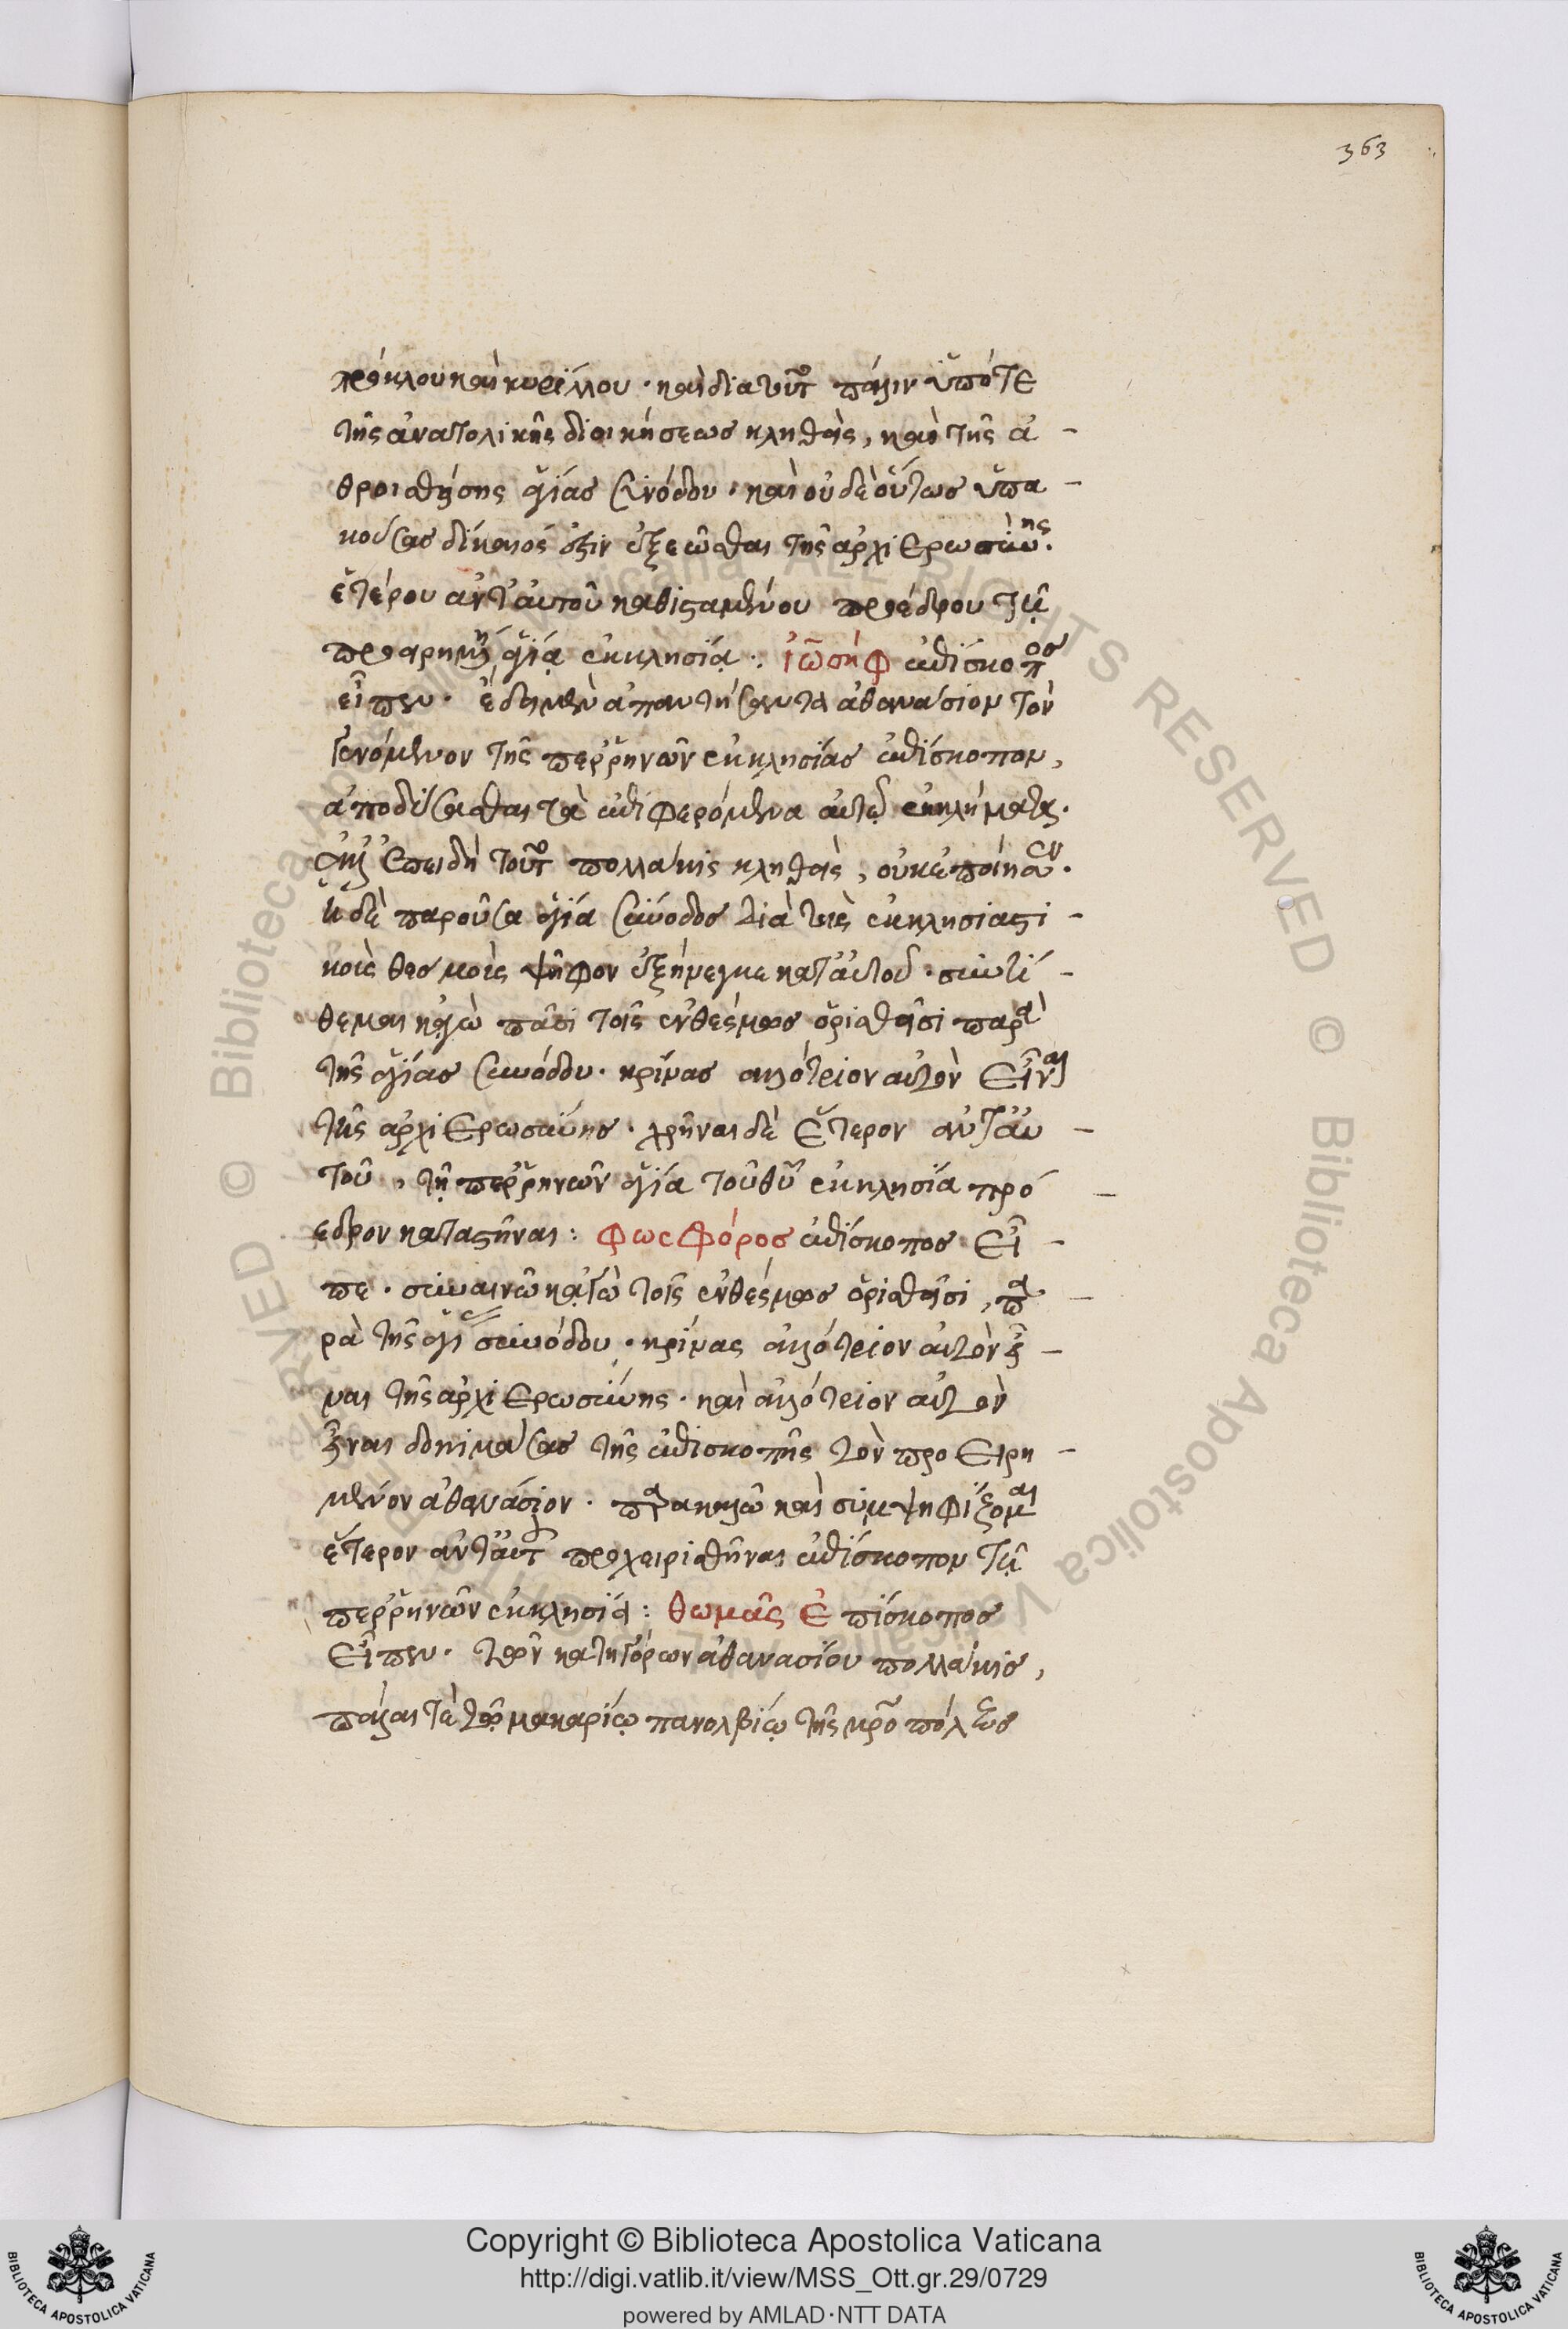 363
πρόκλου καὶ κυρίλλου · καὶ δια τοῦτο πάλιν ὑπό τε
τῆς ἀνατολικῆς διοικήσεως κληθεὶς, καὶ τῆς ἀ -
θροισθείσης ἁγίας συνόδου · καὶ οὐδὲ οὕτως ὑπα -
κούσας δίκαιός ἐστιν ἐξεῶσθαι τῆς ἀρχιερωσύνης.
ἑτέρου ἀντ' αὐτοῦ καθισταμένου προέδρου τῇ
ἁγίᾳ ἐκκλησίᾳ : ἰωσὴφ ἐπίσκοπος
εἶπεν · ἔδει μὲν ἀπαντήσαντα ἀθανάσιον τὸν
γενόμενον τῆς περρηνῶν ἐκκλησίας ἐπίσκοπον,
ἀποδύσασθαι τὰ ἐπιφερόμενα αὐτῷ ἐγκλήματα.
ἐπειδὴ τοῦτο πολλάκις κληθεὶς, οὐκ ἐποίησεν.
ἡ δὲ παροῦσα ἁγία σύνοδος διὰ τοῖς ἐκκλησιαστι -
κοῖς θεσμοῖς ψῆφον ἐξήνεγκε κατ' αὐτοῦ · συντί -
θεμαι κἀγὼ πᾶσι τοῖς ἐνθέσμως ὁρισθεῖσι παρὰ
τῆς ἁγίας συνόδου · κρίνας ἀλλότριον αὐτὸν εἶναι
τῆς ἀρχιερωσύνης · χρῆναι δὲ ἕτερον ἀντ' αὐ -
τοῦ, τῇ περρηνῶν ἁγία τοῦ θυ ἐκκλησία πρό -
εδρον καταστῆναι : φωσφόρος ἐπίσκοπος εἶ -
πε · συναινῶ κἀγὼ τοῖς ἐνθέσμως ὁρισθεῖσι, πα -
ρὰ τῆς ἁγίας συνόδου · κρίνας ἀλλότριον αὐτὸν εἶ -
ναι τῆς ἀρχιερωσύνης · καὶ ἀλλότριον αὐτὸν
εἶναι δοκιμάσας τῆς ἐπισκοπῆς τὸν προειρη -
μένον ἀθανάσιον · παρακαλῶ καὶ συμψηφίζομαι
ἕτερον ἀντ' αὐτοῦ προχειρισθῆναι ἐπίσκοπον τῇ
περρηνῶν ἐκκλησίᾳ : θωμᾶς ἐπίσκοπος
εἶπεν · τῶν κατηγόρων ἀθανασίου πολλάκις,
πάλαι τὲ τῷ μακαρίῳ πανολβίῳ τῆς μητροπόλεως
Copyright © Biblioteca Apostolica Vaticana
http://digi.vatlib.it/view/MSS_Ott.gr.29/0729
powered by AMLAD·NTT DATA
BIBLIOTECA APOSTOLICA VATICANA
BIBLIOTECA APOSTOLICA VATICANA